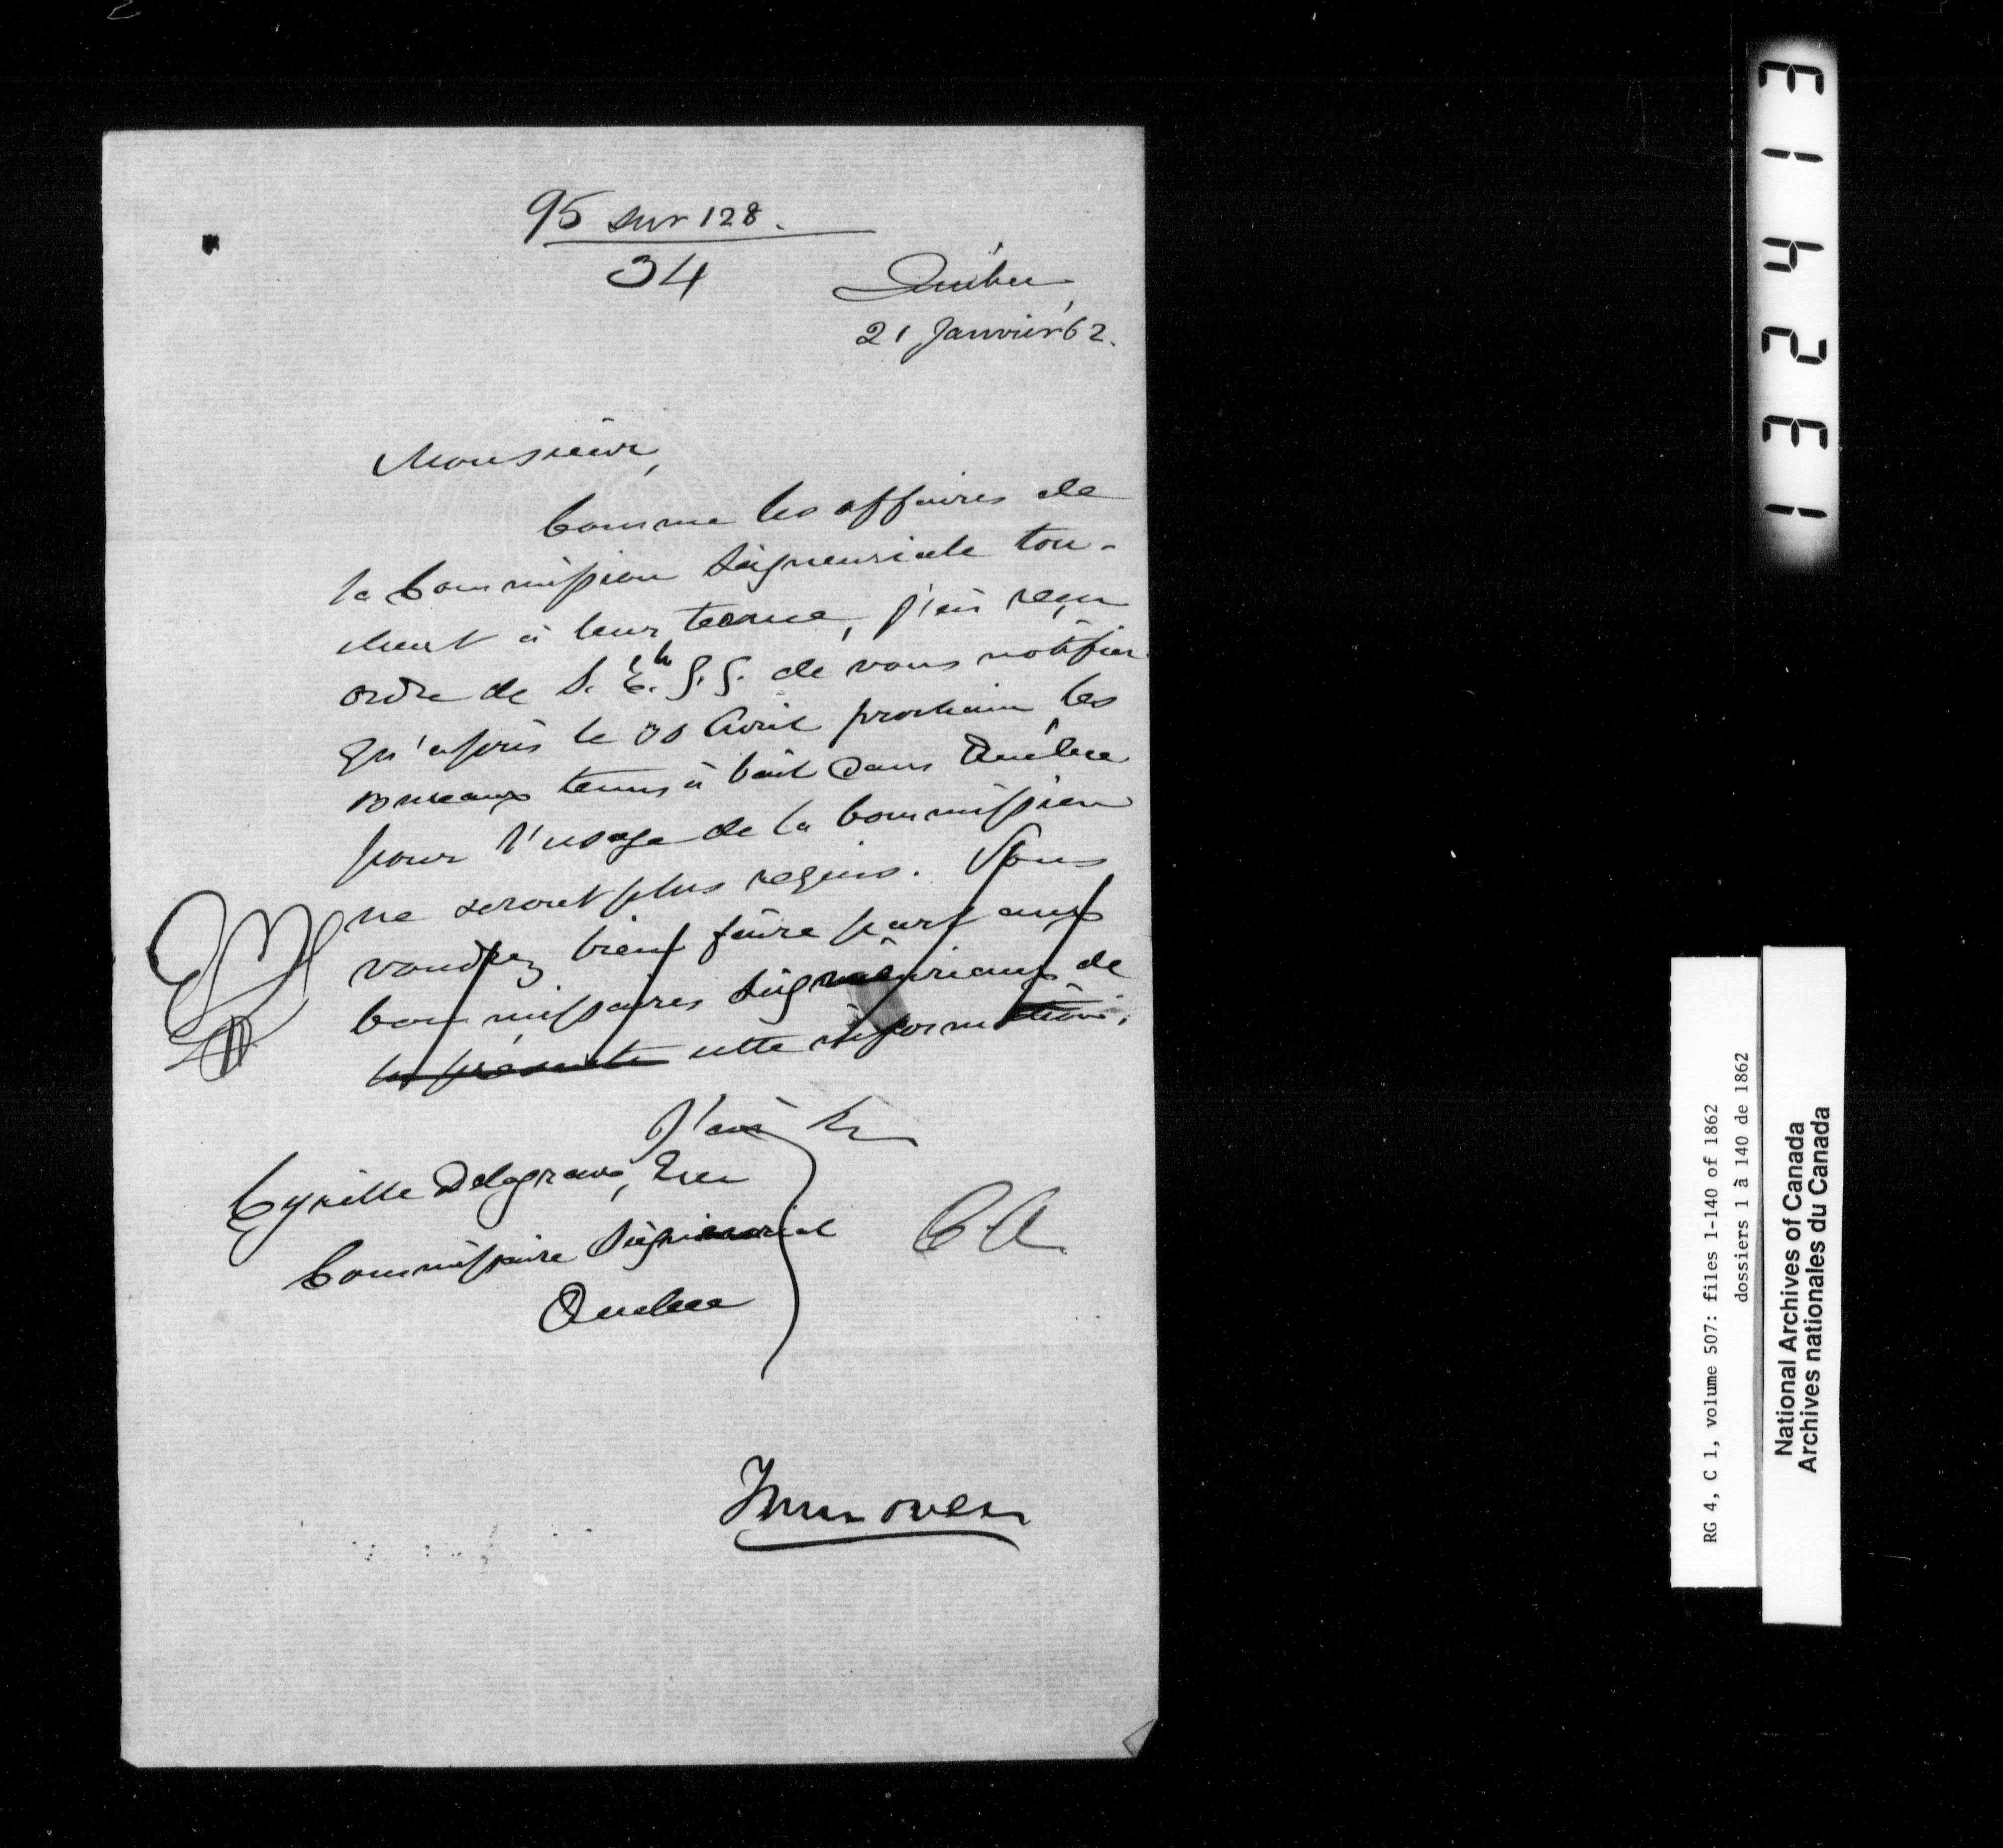 95 sur 128.
34
Québec
21 Janvier 62.
Monsieur,
Comme les affaires de
la Commission Seigneuriale tou-
chent à leur terme, j'ai reçu
ordre de S. E. le G. G. de vous notifier
qu'après le 30 Avril prochain les
Bureaux tenus à bail dans Québec
pour l'usage de la Commission
ne seront plus requis. Vous
voudrez bien faire part aux
Commissaires Seigneuriaux de
la présente cette information.
J'ai &c
Cyrille Delagrave, Ecr
Commissaire Seigneurial
Québec
C.A.
Turn over
314231
RG 4, C 1, volume 507: files 1-140 of 1862
dossiers 1 à 140 de 1862
National Archives of Canada
Archives nationales du Canada